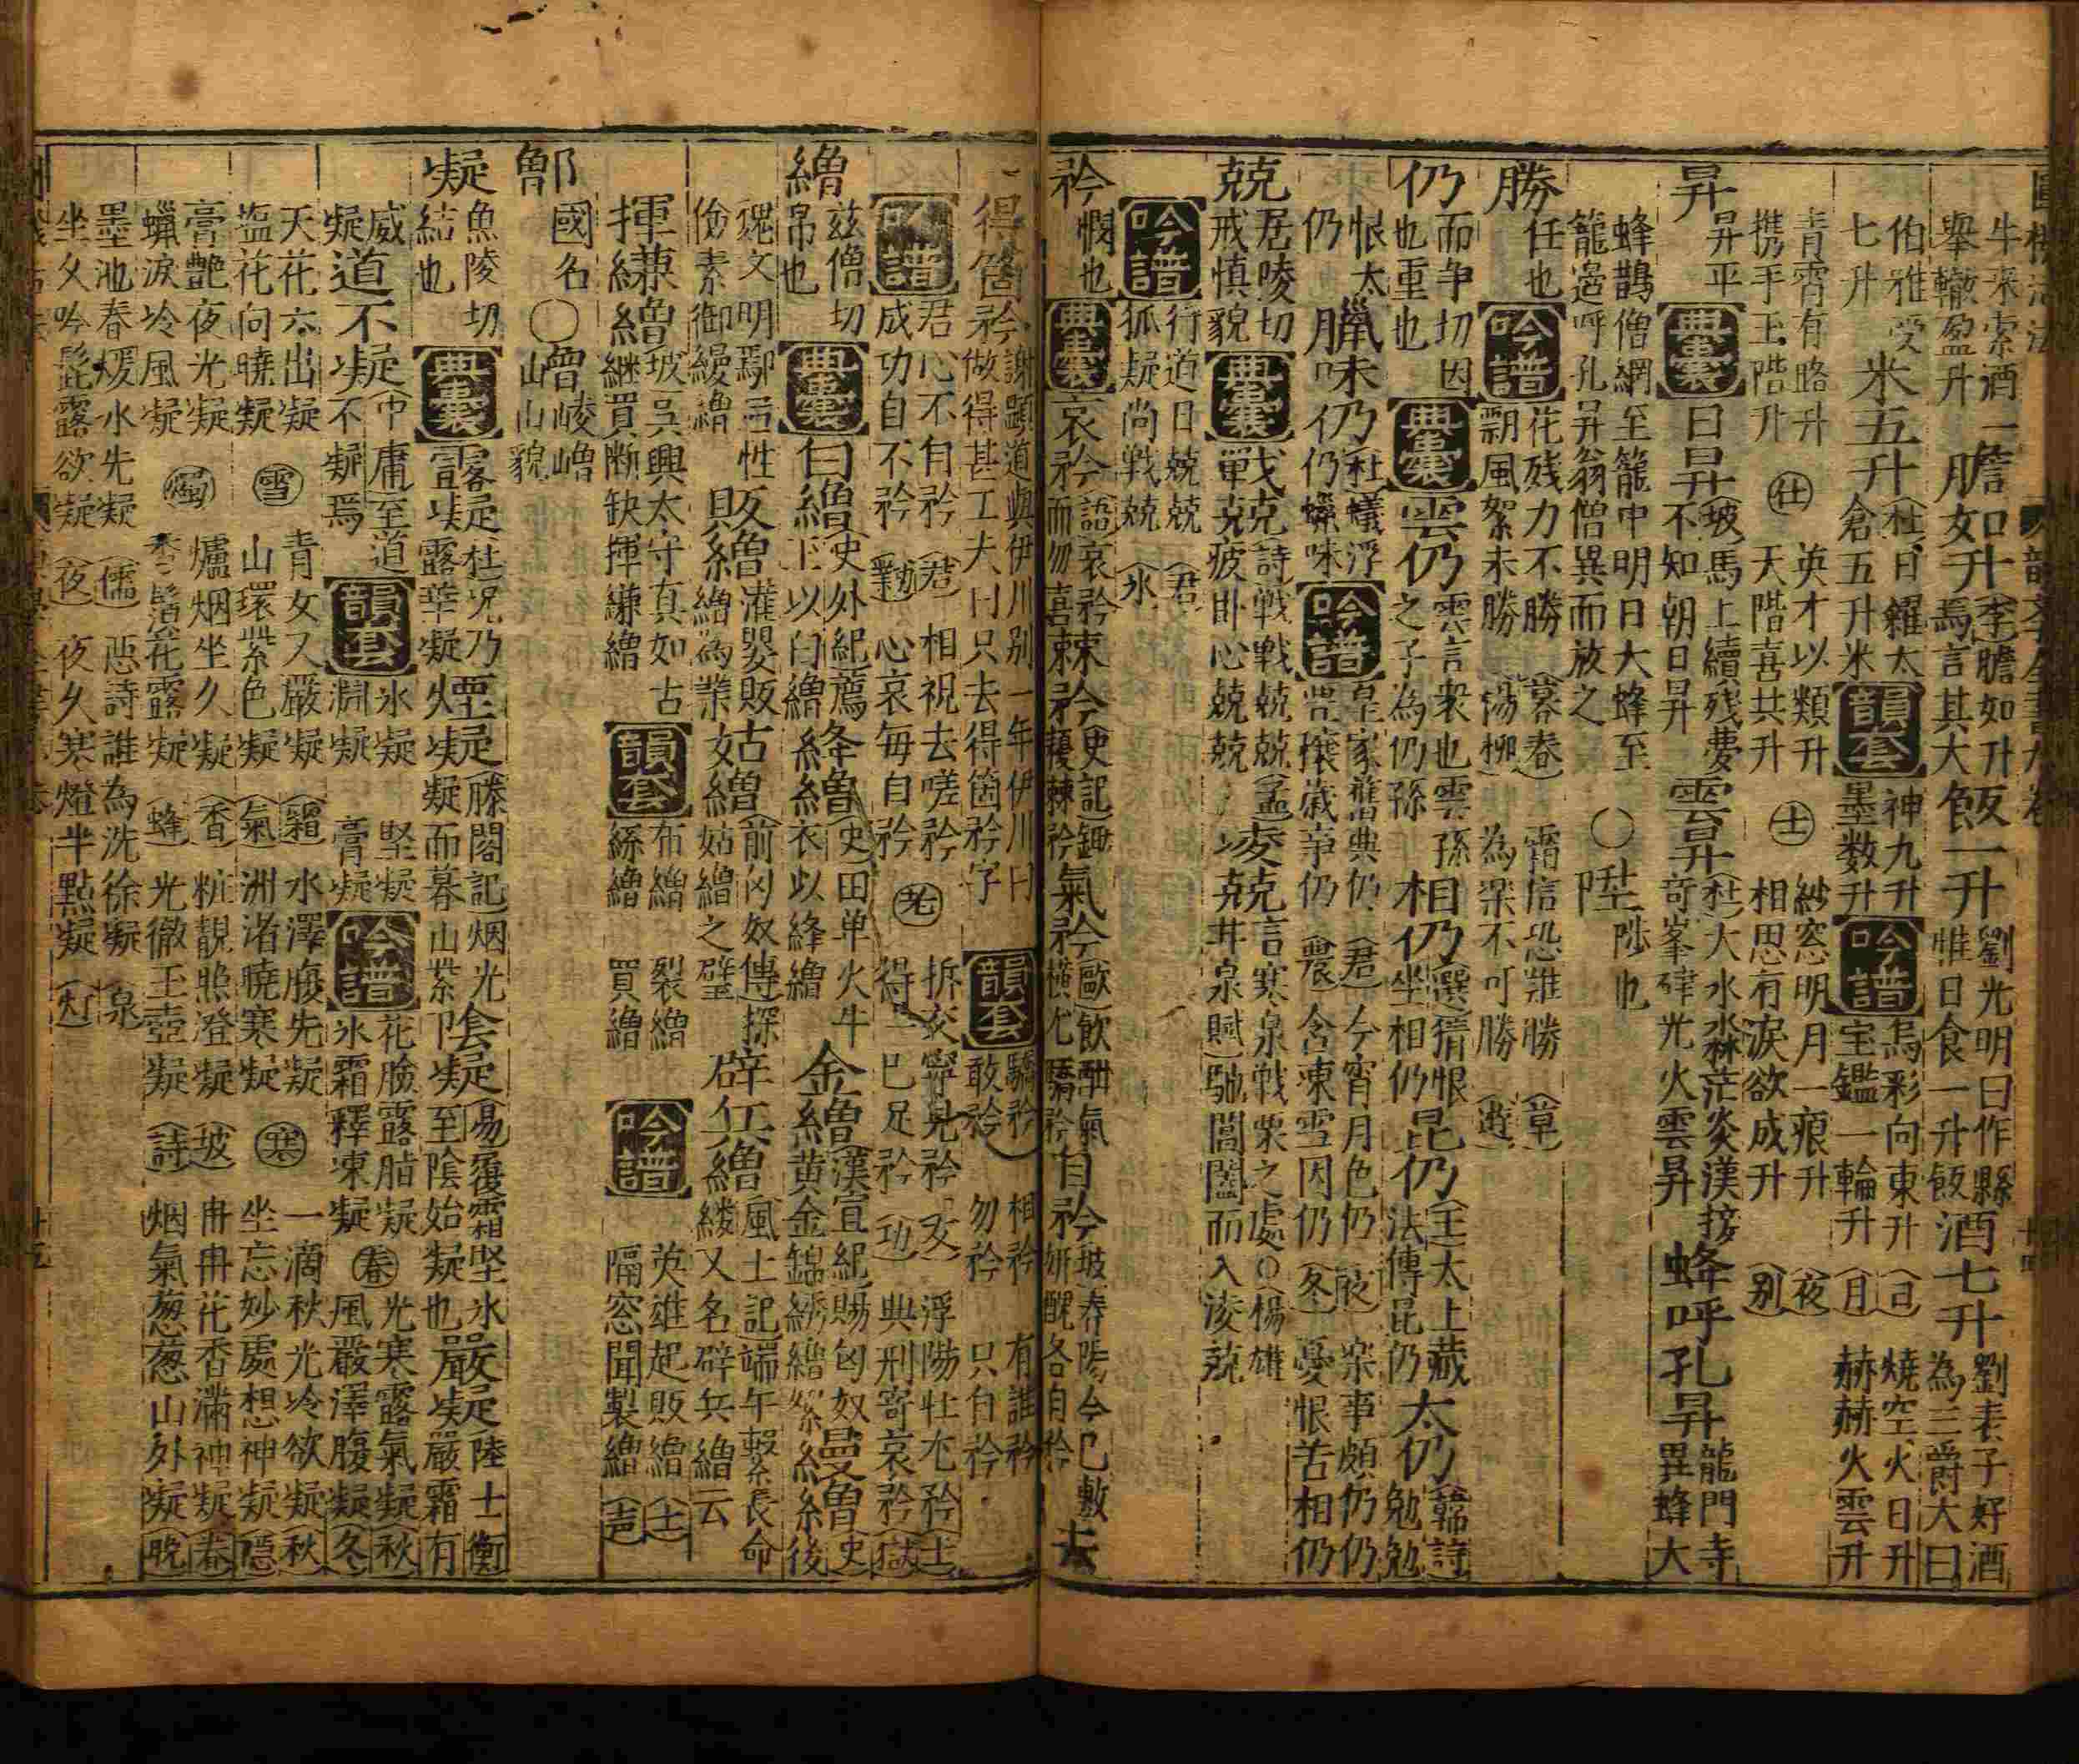 牛來索酒一
舉轍盈升 膽如升 (李)膽如升
焉言其大 飯一升 劉光明曰作縣
惟日食一升飯 酒七升 劉表子好酒
為三爵大曰
伯雅受
七升 米五升 (杜)日糴太
倉五升米 韻套 神九升
墨数升 吟譜 烏彩向東升 (日) 燒空火日升
宝鑑一輪升 (月) 赫赫火雲升
青霄有路升 (仕) 英才以類升 (士) 紗窓明月一痕升 (夜)
携手玉階升 天階喜共升 相思有淚欲成升 (别)
昇 昇平 典囊 日昇 (坡)馬上續残夢
不知朝日昇 雲昇 (杜)大水淼茫炎漢接
奇峯硉光火雲昇 蜂呼孔昇 龍門寺
異蜂大
蜂鵲僧網至籠中明日大蜂至
籠邊呼孔昇翁僧異而放之 ○陞 陟也
勝 任也 吟譜 花残力不勝 (暮春) 霜信恐难勝 (草)
飄風絮未勝 (楊柳) 為梁不可勝 (遊)
仍 而争切因
也重也 典囊 雲仍 雲言衆也雲孫
之子為仍孫 相仍 (選)猜恨
坐相仍 昆仍 (王)太上藏
法傳昆仍 太仍 韓詩
勉勉
恨太
仍 臘味仍 (杜)蟻浮
仍蠟味 吟譜 皇家舊典仍 (君) 今宵月色仍 (夜) 案事頗仍仍
豐穰歲事仍 (農) 含凍雪因仍 (冬) 憂恨苦相仍
兢 居陵切
戒慎貌 典囊 戰兢 (詩)戦戦兢兢(孟)
疲卧心兢兢 凌兢 言寒泉戦栗之處○(楊雄
井泉賦)馳閶闔而入淩兢
吟譜 行道日兢兢 (君)
狐疑尚戰兢 (氷)
矜 憫也 典囊 哀矜 (語)哀矜
而勿喜 棘矜 (史記)鋤
耰棘矜 氣矜 (歐)飲酣氣
橫亿驕矜 自矜 坡春陽今已敷
妍醜各自矜 去
得箇矜 謝顕道與伊川别一年伊川曰
做得甚工夫曰只去得箇矜字 韻套 驕矜 相矜 有誰矜
敢矜 勿矜 只自矜
吟譜 君心不自矜 (君) 相祝去嗟矜 (老) 拆交寧見矜 (交) 浮陽壮尤矜 (士)
成功自不矜 (勤) 心哀每自矜 得一已足矜 (功) 典刑寄哀矜 (獄)
繒 玆僧切
帛也 典囊 白繒 史外紀薦
玉以白繒 絳繒 (史)田单火牛
衣以絳繒 金繒 (漢宣紀)賜匈奴
黄金錦綉繒絮 縵繒 史
後
魏文明
儉素御縵繒 鄢弓性 販繒 灌嬰販
繒為業 姑繒 (前匈奴傳)探
姑繒之壁 辟兵繒 風土記)端午繫長命
縷又名辟兵繒云
揮縑繒 坡呉興太守真如古
継買断缺揮縑繒 韻套 布繒 裂繒
絲繒 買繒 吟譜 英雄起販繒 (士)
隔窓聞製繒 (声)
鄫 國名 ○ 嶒 崚嶒
山山貌
凝 魚陵切
結也 典囊 露凝 杜况乃
露華凝 煙凝 (滕閣記)烟光
凝而暮山紫 陰凝 (易)履霜堅氷
至陰始凝也 嚴凝 陸士衡
嚴霜有
威
凝 道不凝 (中庸)至道
不凝焉 韻套 氷凝 堅凝
凅凝 膏凝 吟譜 花臉露脂凝 (春) 光寒露氣凝 (秋)
氷霜釋凍凝 風嚴澤腹凝 (冬)
天花六出凝 (雪) 青女又嚴凝 (霜) 水澤腹先凝 (寒) 一滴秋光冷欲凝 (秋)
塩花向曉凝 山環紫色凝 (氣) 洲渚曉寒凝 坐忘妙處想神凝 (隠)
膏艷夜光凝 (燭) 爐烟坐久凝 (香) 粧靚照澄凝 (坡) 冉冉花香滿神凝 (春)
蠟淚冷風凝 香鬚花露凝 (蜂) 光徹玉壺凝 (詩) 烟氣葱葱山外凝 (晚)
墨池春煖水先凝 (儒) 恶詩誰為洗徐凝 (泉)
坐久吟髭露欲凝 (夜) 夜久寒燈半點凝 (灯)